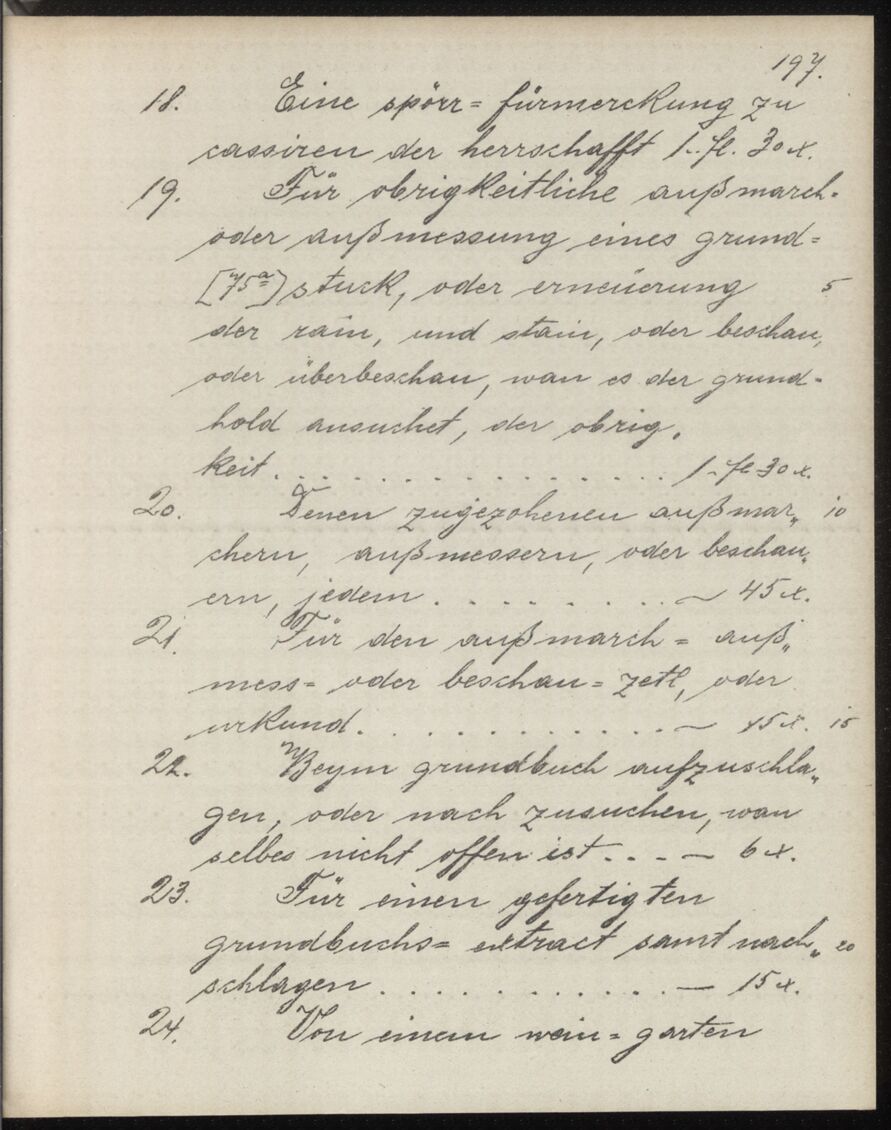 197.
18. Eine spörr= fürmerckung zu
cassiren der herrschafft 1.. fl. 30 x.
19. Für obrigkeitliche außmarch-
oder außmessung eines grund=
[75a] stuck, oder erneüerung 5
der rain, und stain, oder beschau,
oder überbeschau, wan es der grund-
hold ansuchet, der obrig,
keit. . . . . . . . . . . . . . . . 1.. fl 30 x.
20. Denen zugezohenen außmar„ 10
chern, außmessern, oder beschau„
ern, jedem . . . . . . . . . ~ 45 x.
21. Für den außmarch = auß„
mess= oder beschau= zetl, oder
urkund. . . . . . . . . . . . . ~ 45 x. 15
22. Beym grundbuch aufzuschla„
gen, oder nach zusuchen, wan
selbes nicht offen ist . . . — 6 x.
23. Für einen gefertigten
grundbuchs= extract samt nach„ 20
schlagen . . . . . . . . . . . — 15 x.
24. Von einem wein= garten